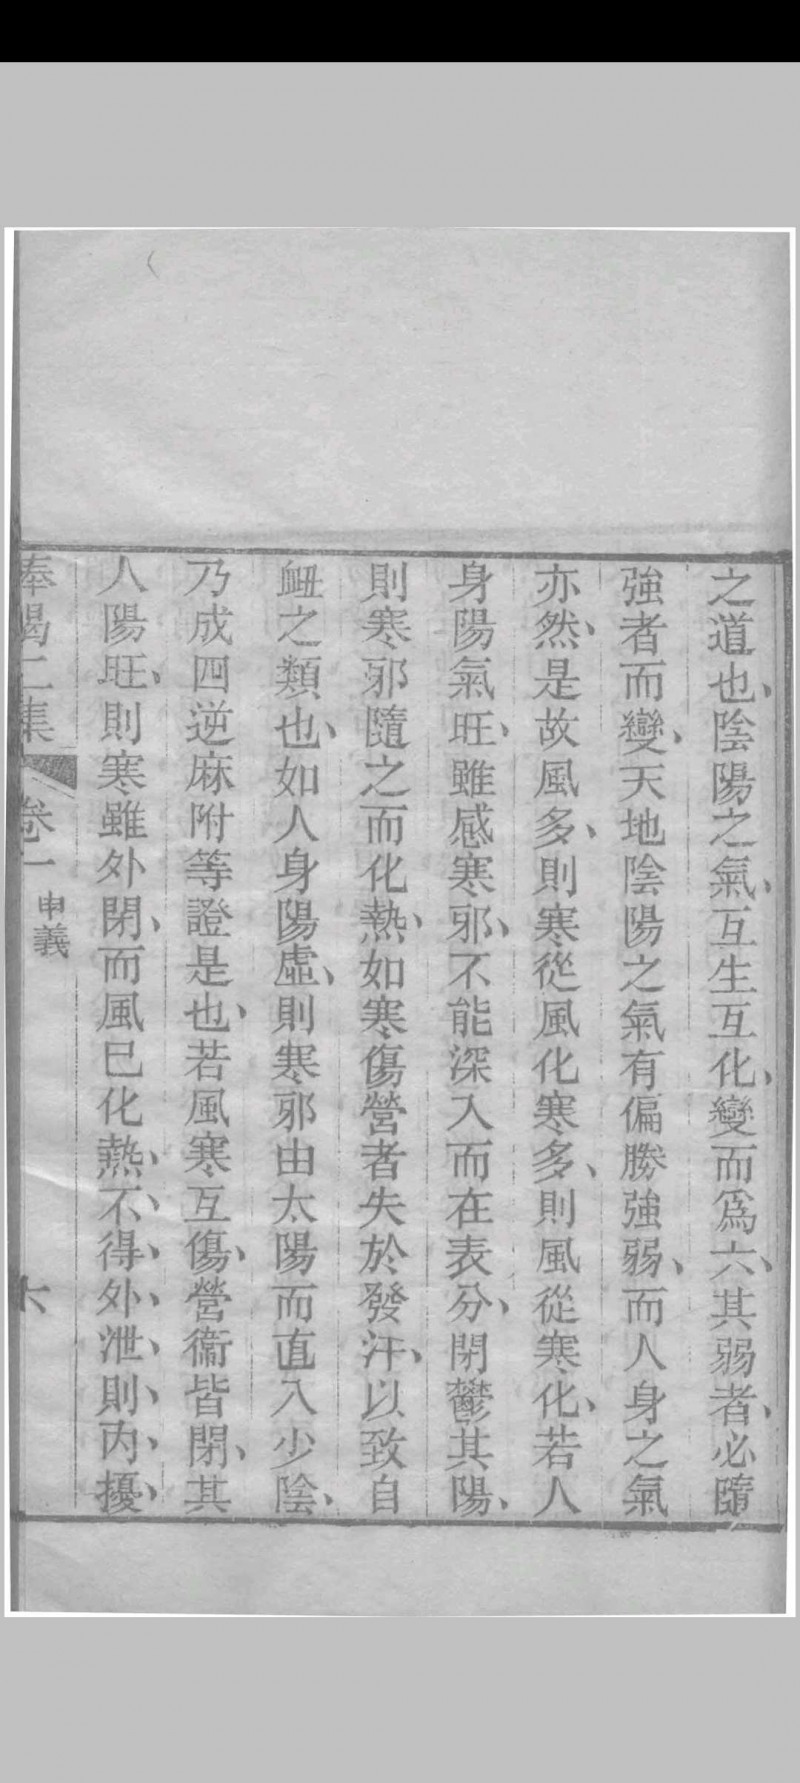 之道也、陰陽之氣、互生互化、變而爲六、其弱者、必隨
強者而變、天地陰陽之氣有偏勝強弱、而人身之氣
亦然、是故風多、則寒從風化寒多、則風從寒化、若人
身陽氣旺、雖感寒邪、不能深入而在表分、閉鬱其陽、
則寒邪隨之而化熱、如寒傷營者失於發汗、以致自
衄之類也、如人身陽虛、則寒邪由太陽而直入少陰、
乃成四逆麻附等證是也、若風寒互傷、營衞皆閉、其
人陽旺、則寒雖外閉、而風巳化熱、不、得、外、泄、則、內、擾、
集 卷一 申義 六